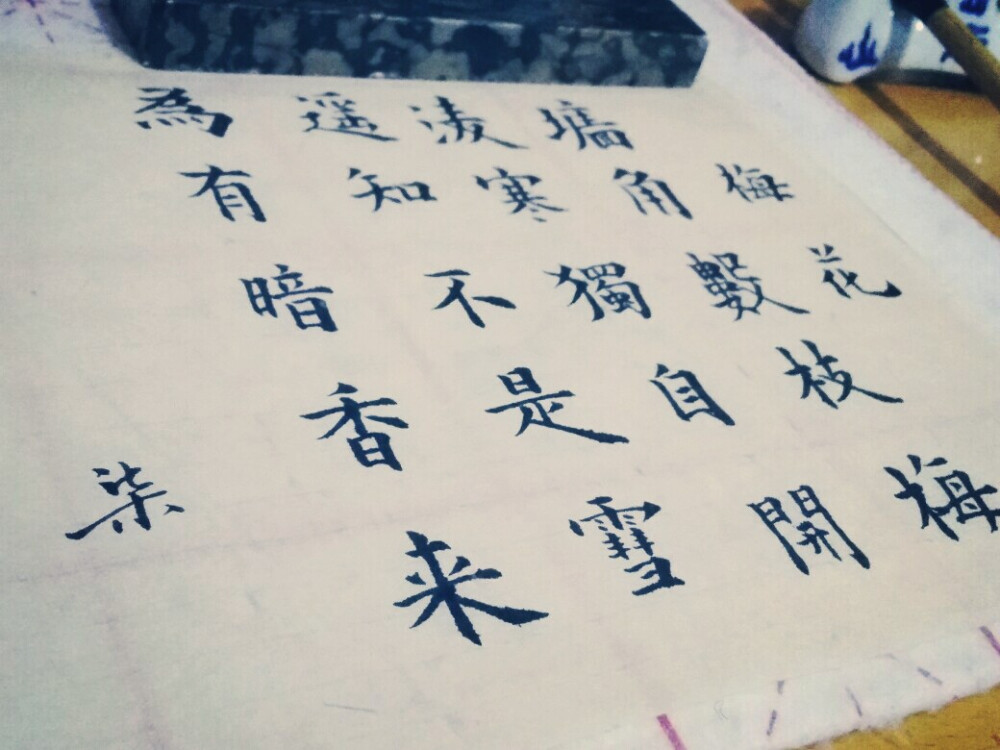 梅花
墙角數枝梅
淩寒獨自開
遥知不是雪
為有暗香来
柒